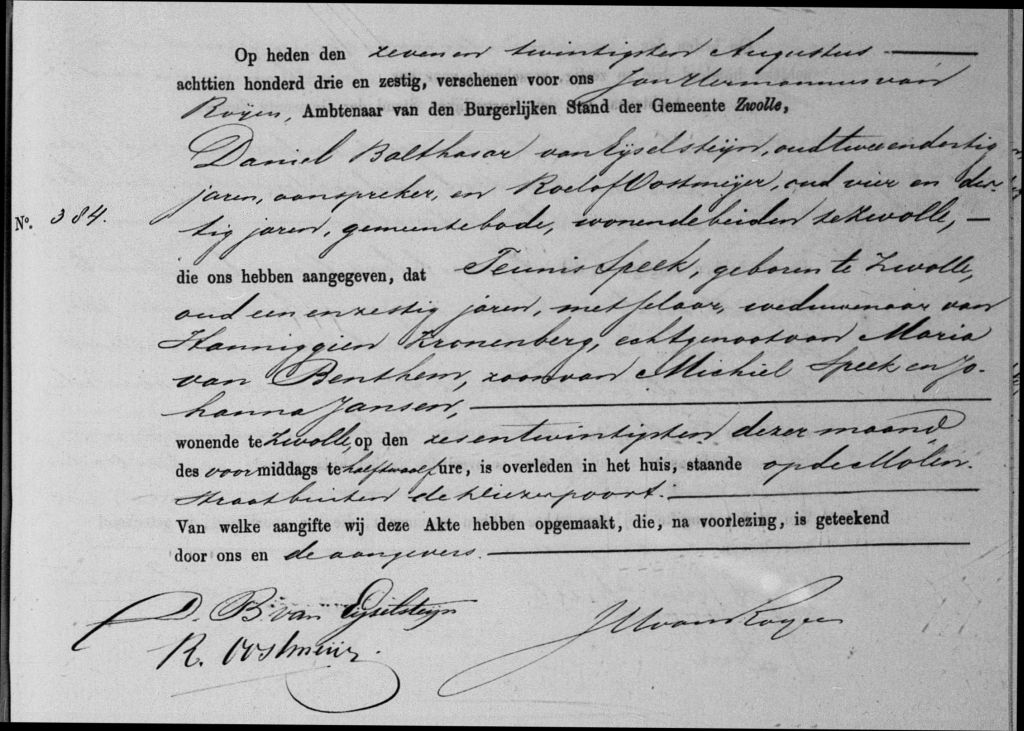 Op heden den zeven en twintigsten Augustus
achttien honderd drie en zestig, verschenen voor ons Jan Hermannus van
Roijen, Ambtenaar van den Burgerlijken Stand der Gemeente Zwolle,
Daniel Balthasar van Eijselsteijn, oud twee en dertig
jaren, aanspreker, en Roelof Oostmeijer, oud vier en der-
No. 384. tig jaren, gemeentebode, wonende beiden te Zwolle,
die ons hebben aangegeven, dat Teunis Speek, geboren te Zwolle,
oud een en zestig jaren, metselaar, weduwenaar van
Hanniggien Kronenberg, echtgenoot van Maria
van Benthem, zoon van Michiel Speek en Jo-
hanna Jansen,
wonende te Zwolle, op den zes en twintigsten dezer maand
des voormiddags te half twaalf ure, is overleden in het huis, staande op de Molen-
straat buiten de Diezerpoort.
Van welke aangifte wij deze Akte hebben opgemaakt, die, na voorlezing, is geteekend
door ons en de aangevers.
D. B. van Eijselsteijn
R. Oostmeijer.
JHvanRoijen